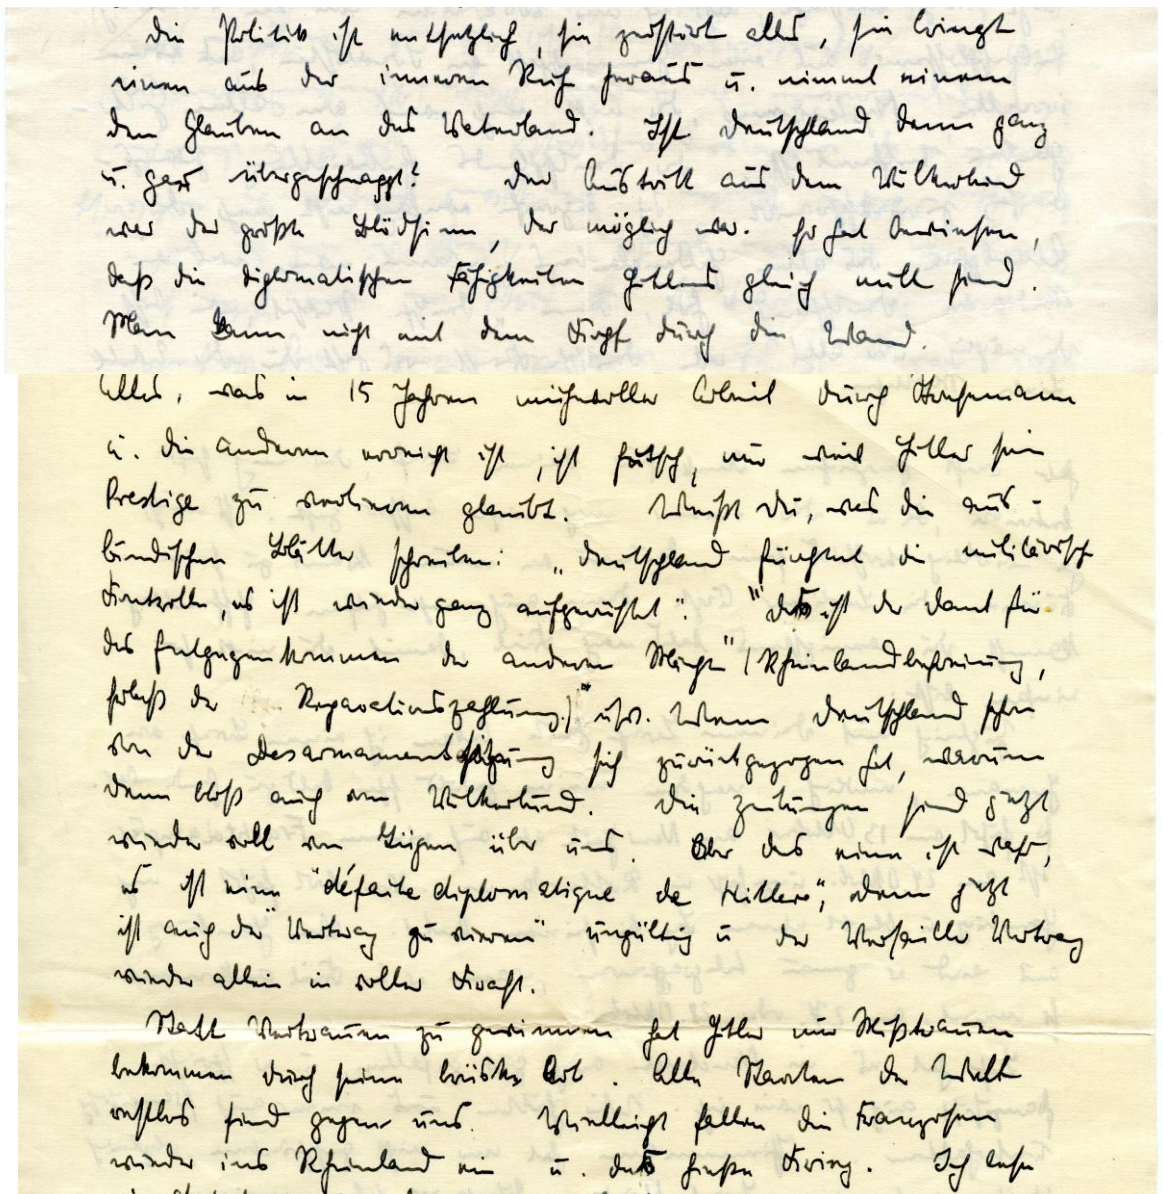 Die Politik ist entsetzlich, sie zerstört alles, sie bringt
einen aus der inneren Ruhe heraus u. nimmt einem
den Glauben an das Vaterland. Ist Deutschland denn ganz
u. gar übergeschnappt? Der Austritt aus dem Völkerbund
war der größte Blödsinn, der möglich war. Er hat bewiesen,
daß die diplomatischen Fähigkeiten Hitlers gleich null sind.
Man kann nicht mit dem Kopf durch die Wand.
Alles, was in 15 Jahren mühevoller Arbeit durch Stresemann
u. die anderen erreicht ist, ist futsch, nur weil Hitler sein
Prestige zu verlieren glaubt. Weißt Du, was die aus-
ländischen Blätter schreiben: „Deutschland fürchtet die militärische
Kontrolle, es ist wieder ganz aufgerüstet". "Das ist der Dank für
das Entgegenkommen der anderen Mächte" (Rheinlandbefreiung,
Erlaß der Reparationszahlung)" usw. Wenn Deutschland schon
von der Desarmamentsitzung sich zurückgezogen hat, warum
denn bloß auch vom Völkerbund. Die Zeitungen sind jetzt
wieder voll von Lügen über uns. Aber das eine ist wahr,
es ist eine "défaite diplomatique de Hitlers", denn jetzt
ist auch der "Vertrag zu vieren" ungültig u der Versailler Vertrag
wieder allein in voller Kraft.
Statt Vertrauen zu gewinnen hat Hitler nur Mißtrauen
bekommen durch seine brüske Art. Alle Staaten der Welt
restlos sind gegen uns. Vielleicht fallen die Franzosen
wieder ins Rheinland ein u. das hieße Krieg. Ich lese